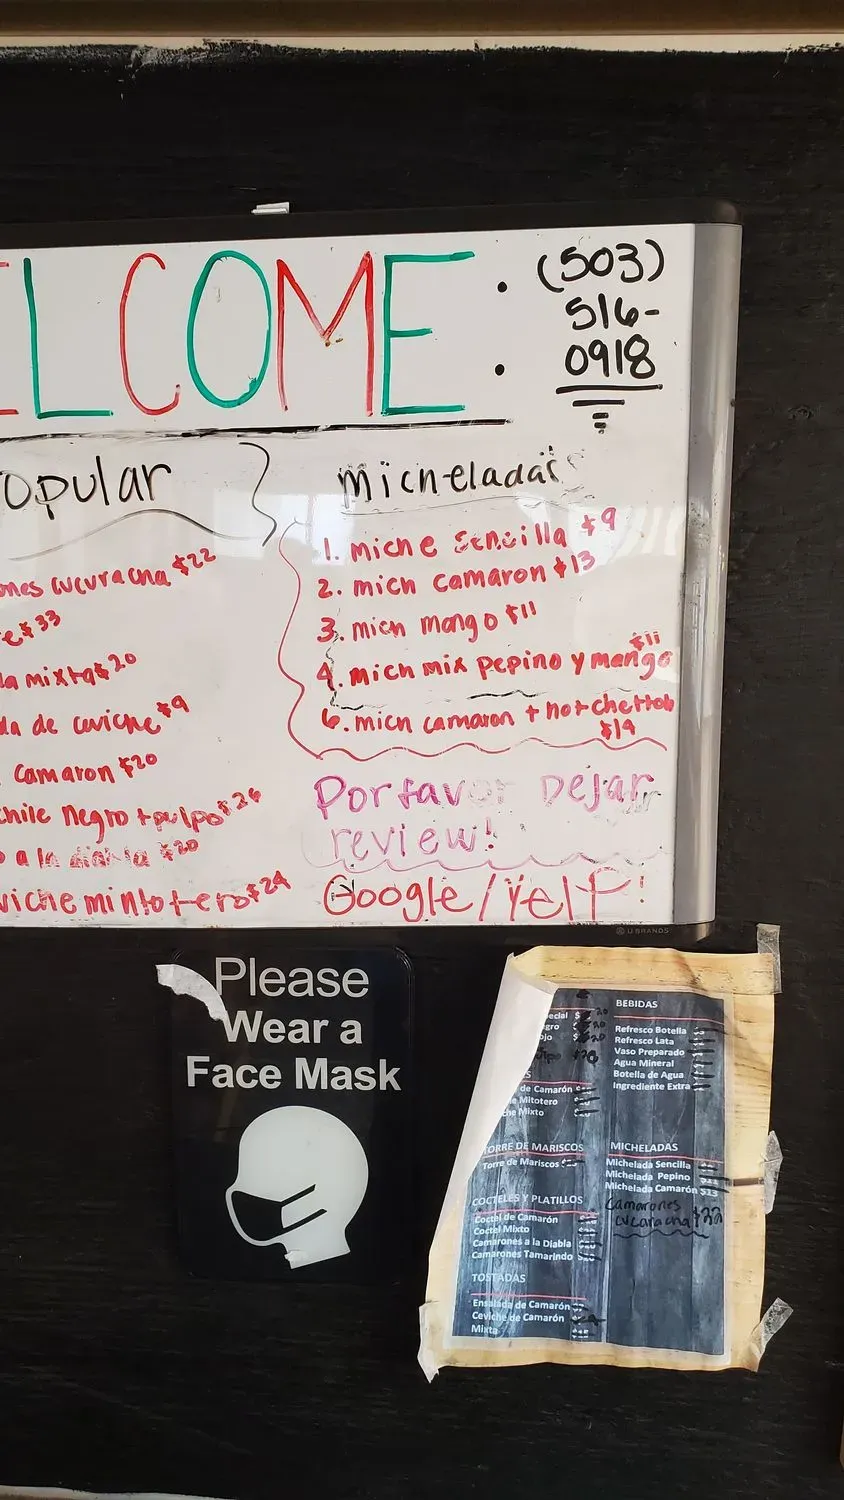 ELCOME:
(503)
516-
0918
opular
micheladas
ones cucuracha $22
e $33
da mixta $20
da de ceviche $9
camaron $20
chile Negro + pulpo $26
o a la diabla $20
viche mintotero $24
1. miche sencilla $9
2. mich camaron $13
3. mich mango $11
4. mich mix pepino y mango $11
6. mich camaron + hot chettos
$14
Por favor Dejar
review!
Google/Yelp!
U BRANDS
Please
Wear a
Face Mask
ecial $ 20
gro 20
ojo 20
ulpo $26
S
de Camarón
e Mitotero
he Mixto
TORRE DE MARISCOS
Torre de Mariscos
COCTELES Y PLATILLOS
Coctel de Camarón
Coctel Mixto
Camarones a la Diabla
Camarones Tamarindo
TOSTADAS
Ensalada de Camarón
Ceviche de Camarón
Mixta
BEBIDAS
Refresco Botella
Refresco Lata
Vaso Preparado
Agua Mineral
Botella de Agua
Ingrediente Extra
MICHELADAS
Michelada Sencilla
Michelada Pepino
Michelada Camarón $13
Camarones
cucaracha $22